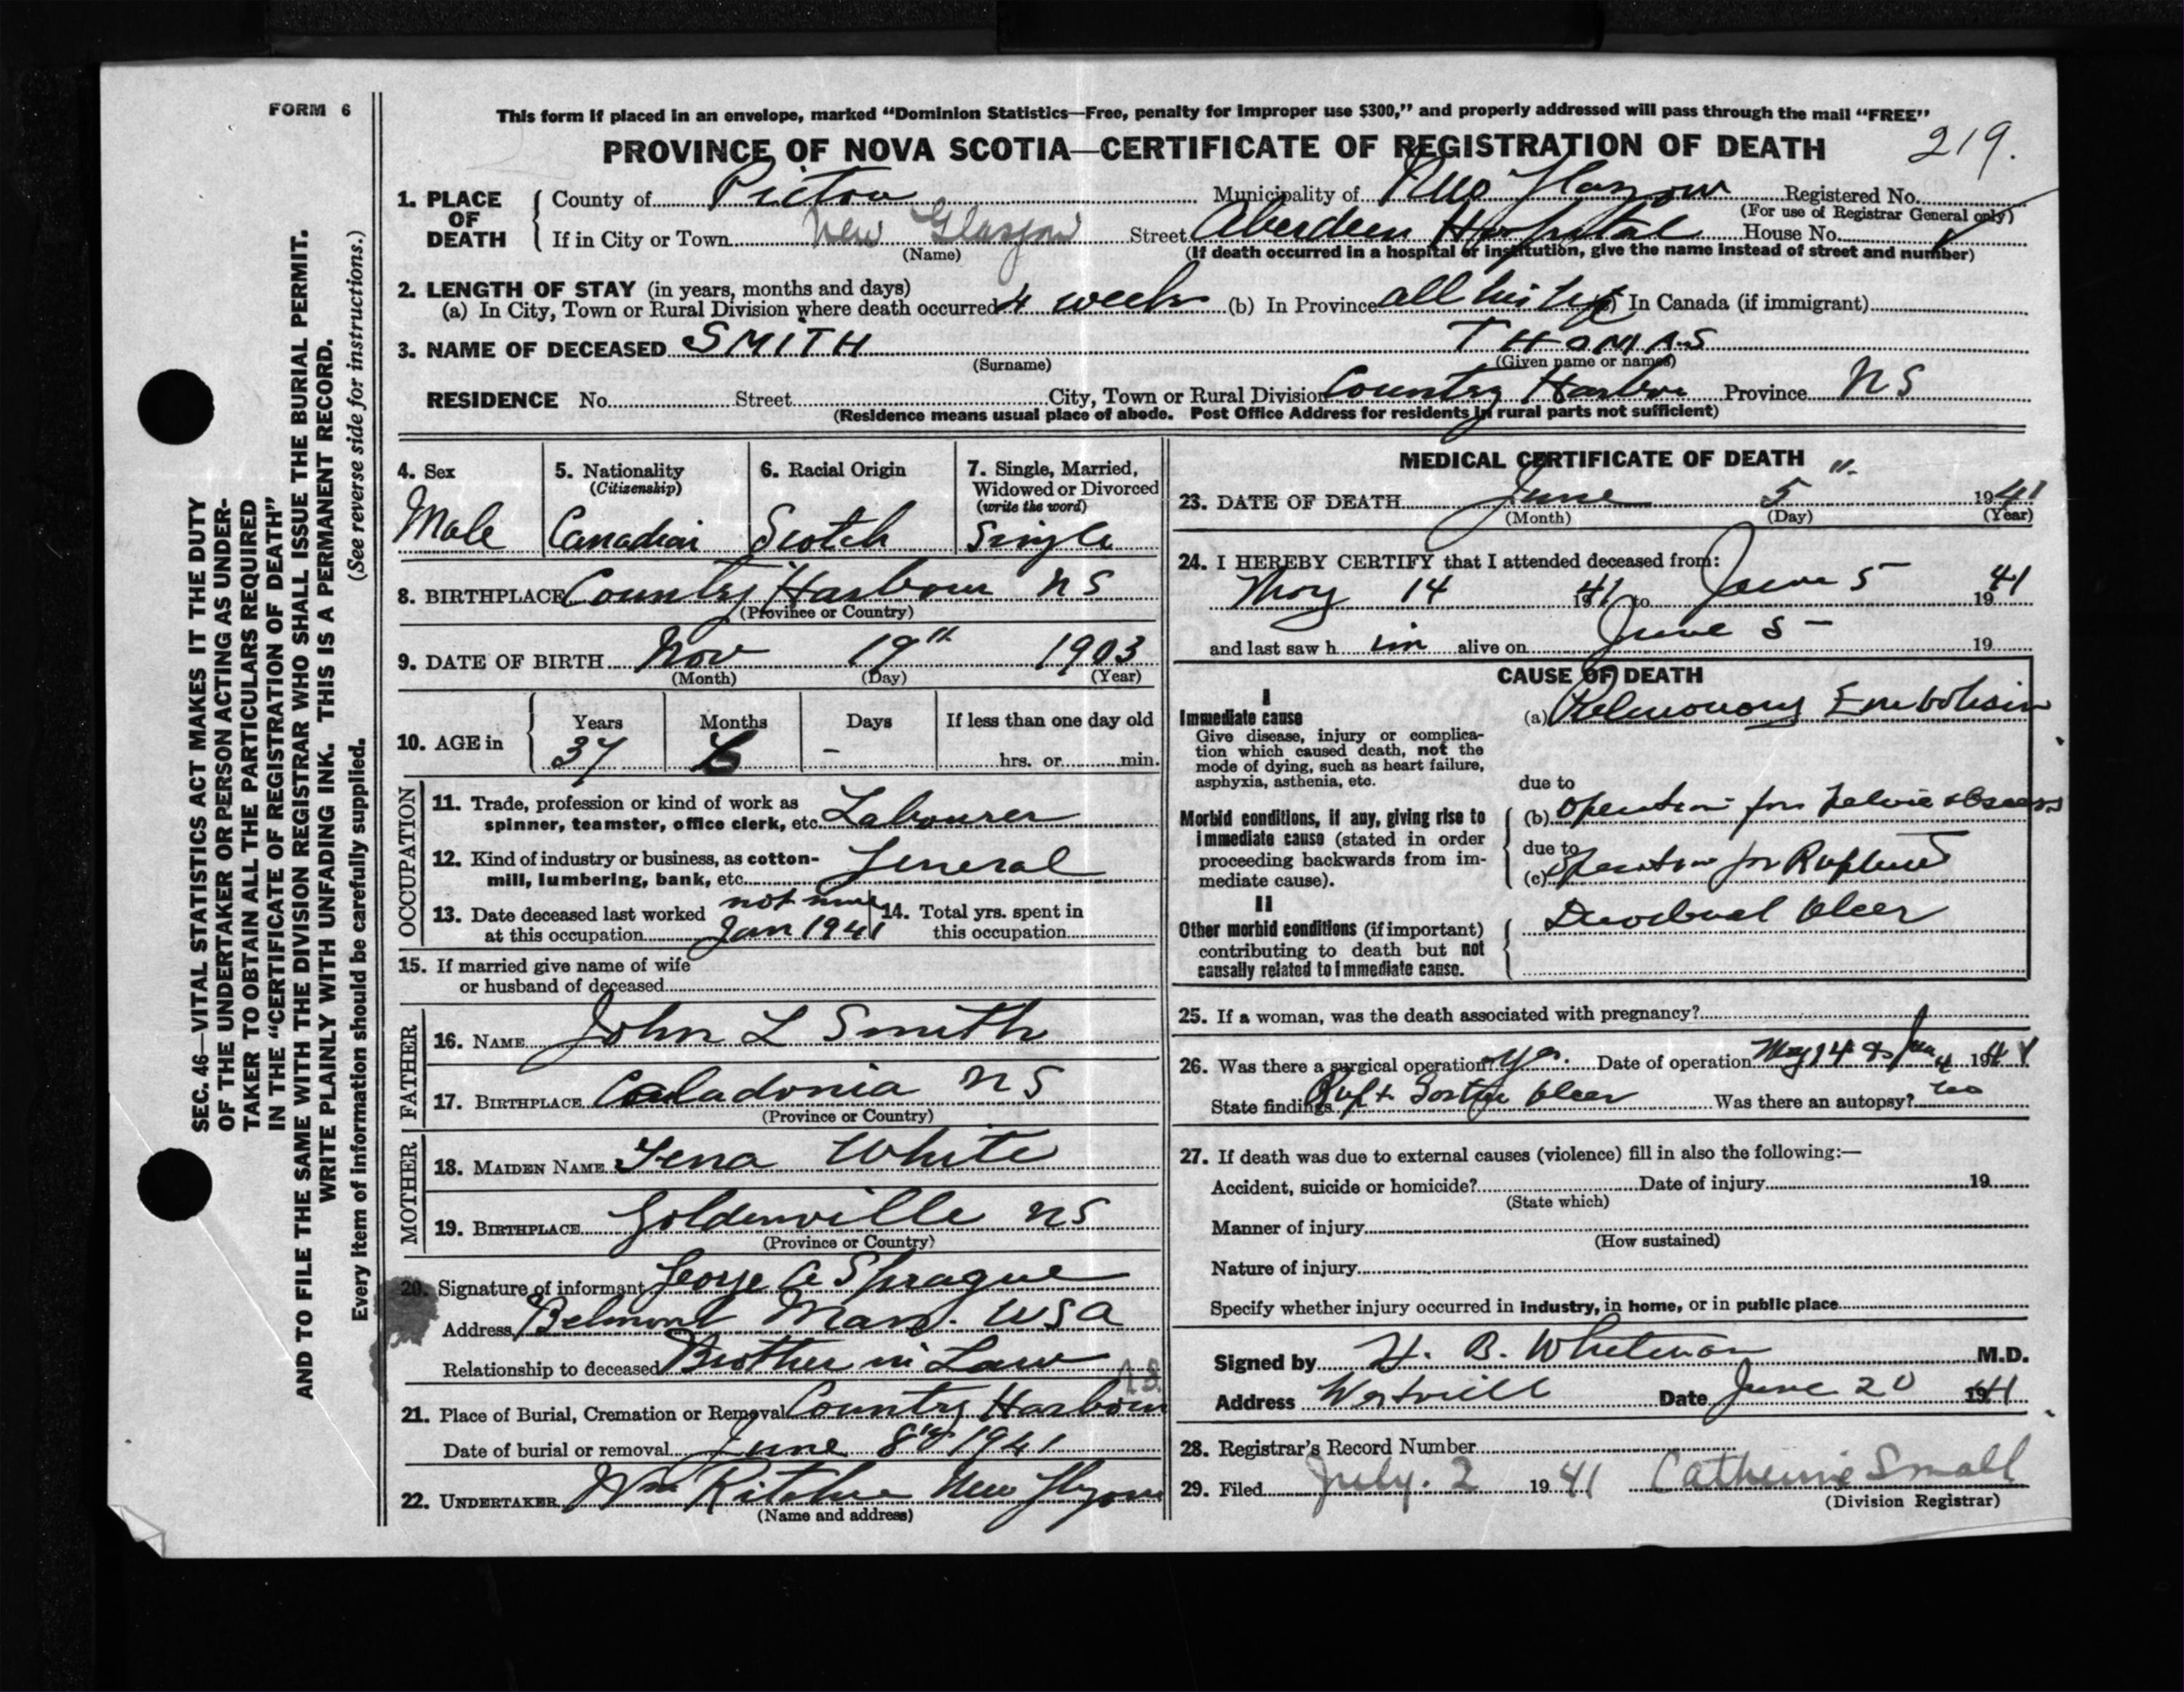 FORM 6
This form if placed in an envelope, marked “Dominion Statistics—Free, penalty for improper use $300,” and properly addressed will pass through the mail “FREE”
PROVINCE OF NOVA SCOTIA—CERTIFICATE OF REGISTRATION OF DEATH 219.
1. PLACE OF DEATH
County of Pictou Municipality of New Glasgow Registered No.
(For use of Registrar General only)
If in City or Town New Glasgow Street Aberdeen Hospital House No.
(Name) (If death occurred in a hospital or institution, give the name instead of street and number)
2. LENGTH OF STAY (in years, months and days)
(a) In City, Town or Rural Division where death occurred 4 weeks (b) In Province all his life (c) In Canada (if immigrant)
3. NAME OF DECEASED SMITH THOMAS
(Surname) (Given name or names)
RESIDENCE No. Street City, Town or Rural Division Country Harbor Province NS
(Residence means usual place of abode. Post Office Address for residents in rural parts not sufficient)
4. Sex
Male
5. Nationality
(Citizenship)
Canadian
6. Racial Origin
Scotch
7. Single, Married,
Widowed or Divorced
(write the word)
Single
8. BIRTHPLACE Country Harbour NS
(Province or Country)
9. DATE OF BIRTH Nov 19th 1903
(Month) (Day) (Year)
10. AGE in
Years Months Days If less than one day old
37 6 - hrs. or min.
OCCUPATION
11. Trade, profession or kind of work as
spinner, teamster, office clerk, etc. Labourer
12. Kind of industry or business, as cotton-
mill, lumbering, bank, etc. General
13. Date deceased last worked not since
at this occupation Jan 1941
14. Total yrs. spent in
this occupation
15. If married give name of wife
or husband of deceased
FATHER
16. NAME John L Smith
17. BIRTHPLACE Caladonia NS
(Province or Country)
MOTHER
18. MAIDEN NAME Tena White
19. BIRTHPLACE Goldenville NS
(Province or Country)
20. Signature of informant George A Sprague
Address Belmont Mass. USA
Relationship to deceased Brother in Law
21. Place of Burial, Cremation or Removal Country Harbour N.S.
Date of burial or removal June 8th 1941
22. UNDERTAKER Wm Ritchie New Glasgow
(Name and address)
MEDICAL CERTIFICATE OF DEATH
23. DATE OF DEATH June 5 1941
(Month) (Day) (Year)
24. I HEREBY CERTIFY that I attended deceased from:
May 14 1941 to June 5 1941
and last saw him alive on June 5 - 19
CAUSE OF DEATH
I
Immediate cause
Give disease, injury or complica-
tion which caused death, not the
mode of dying, such as heart failure,
asphyxia, asthenia, etc.
(a) Pulmonary Embolism
due to
Morbid conditions, if any, giving rise to
immediate cause (stated in order
proceeding backwards from im-
mediate cause).
(b) Operation for Pelvic abscess
due to
(c) Operation for Ruptured
II
Other morbid conditions (if important)
contributing to death but not
causally related to immediate cause.
Duodenal Ulcer
25. If a woman, was the death associated with pregnancy?
26. Was there a surgical operation? yes. Date of operation May 14 & June 4 1941
State findings Rupt Gastric Ulcer Was there an autopsy? no
27. If death was due to external causes (violence) fill in also the following:—
Accident, suicide or homicide? Date of injury 19
(State which)
Manner of injury
(How sustained)
Nature of injury
Specify whether injury occurred in industry, in home, or in public place
Signed by H. B. Whitman M.D.
Address Westville Date June 20 1941
28. Registrar's Record Number
29. Filed July. 2 1941 Catherine Small
(Division Registrar)
SEC. 46—VITAL STATISTICS ACT MAKES IT THE DUTY
OF THE UNDERTAKER OR PERSON ACTING AS UNDER-
TAKER TO OBTAIN ALL THE PARTICULARS REQUIRED
IN THE “CERTIFICATE OF REGISTRATION OF DEATH”
AND TO FILE THE SAME WITH THE DIVISION REGISTRAR WHO SHALL ISSUE THE BURIAL PERMIT.
WRITE PLAINLY WITH UNFADING INK. THIS IS A PERMANENT RECORD.
Every item of information should be carefully supplied. (See reverse side for instructions.)